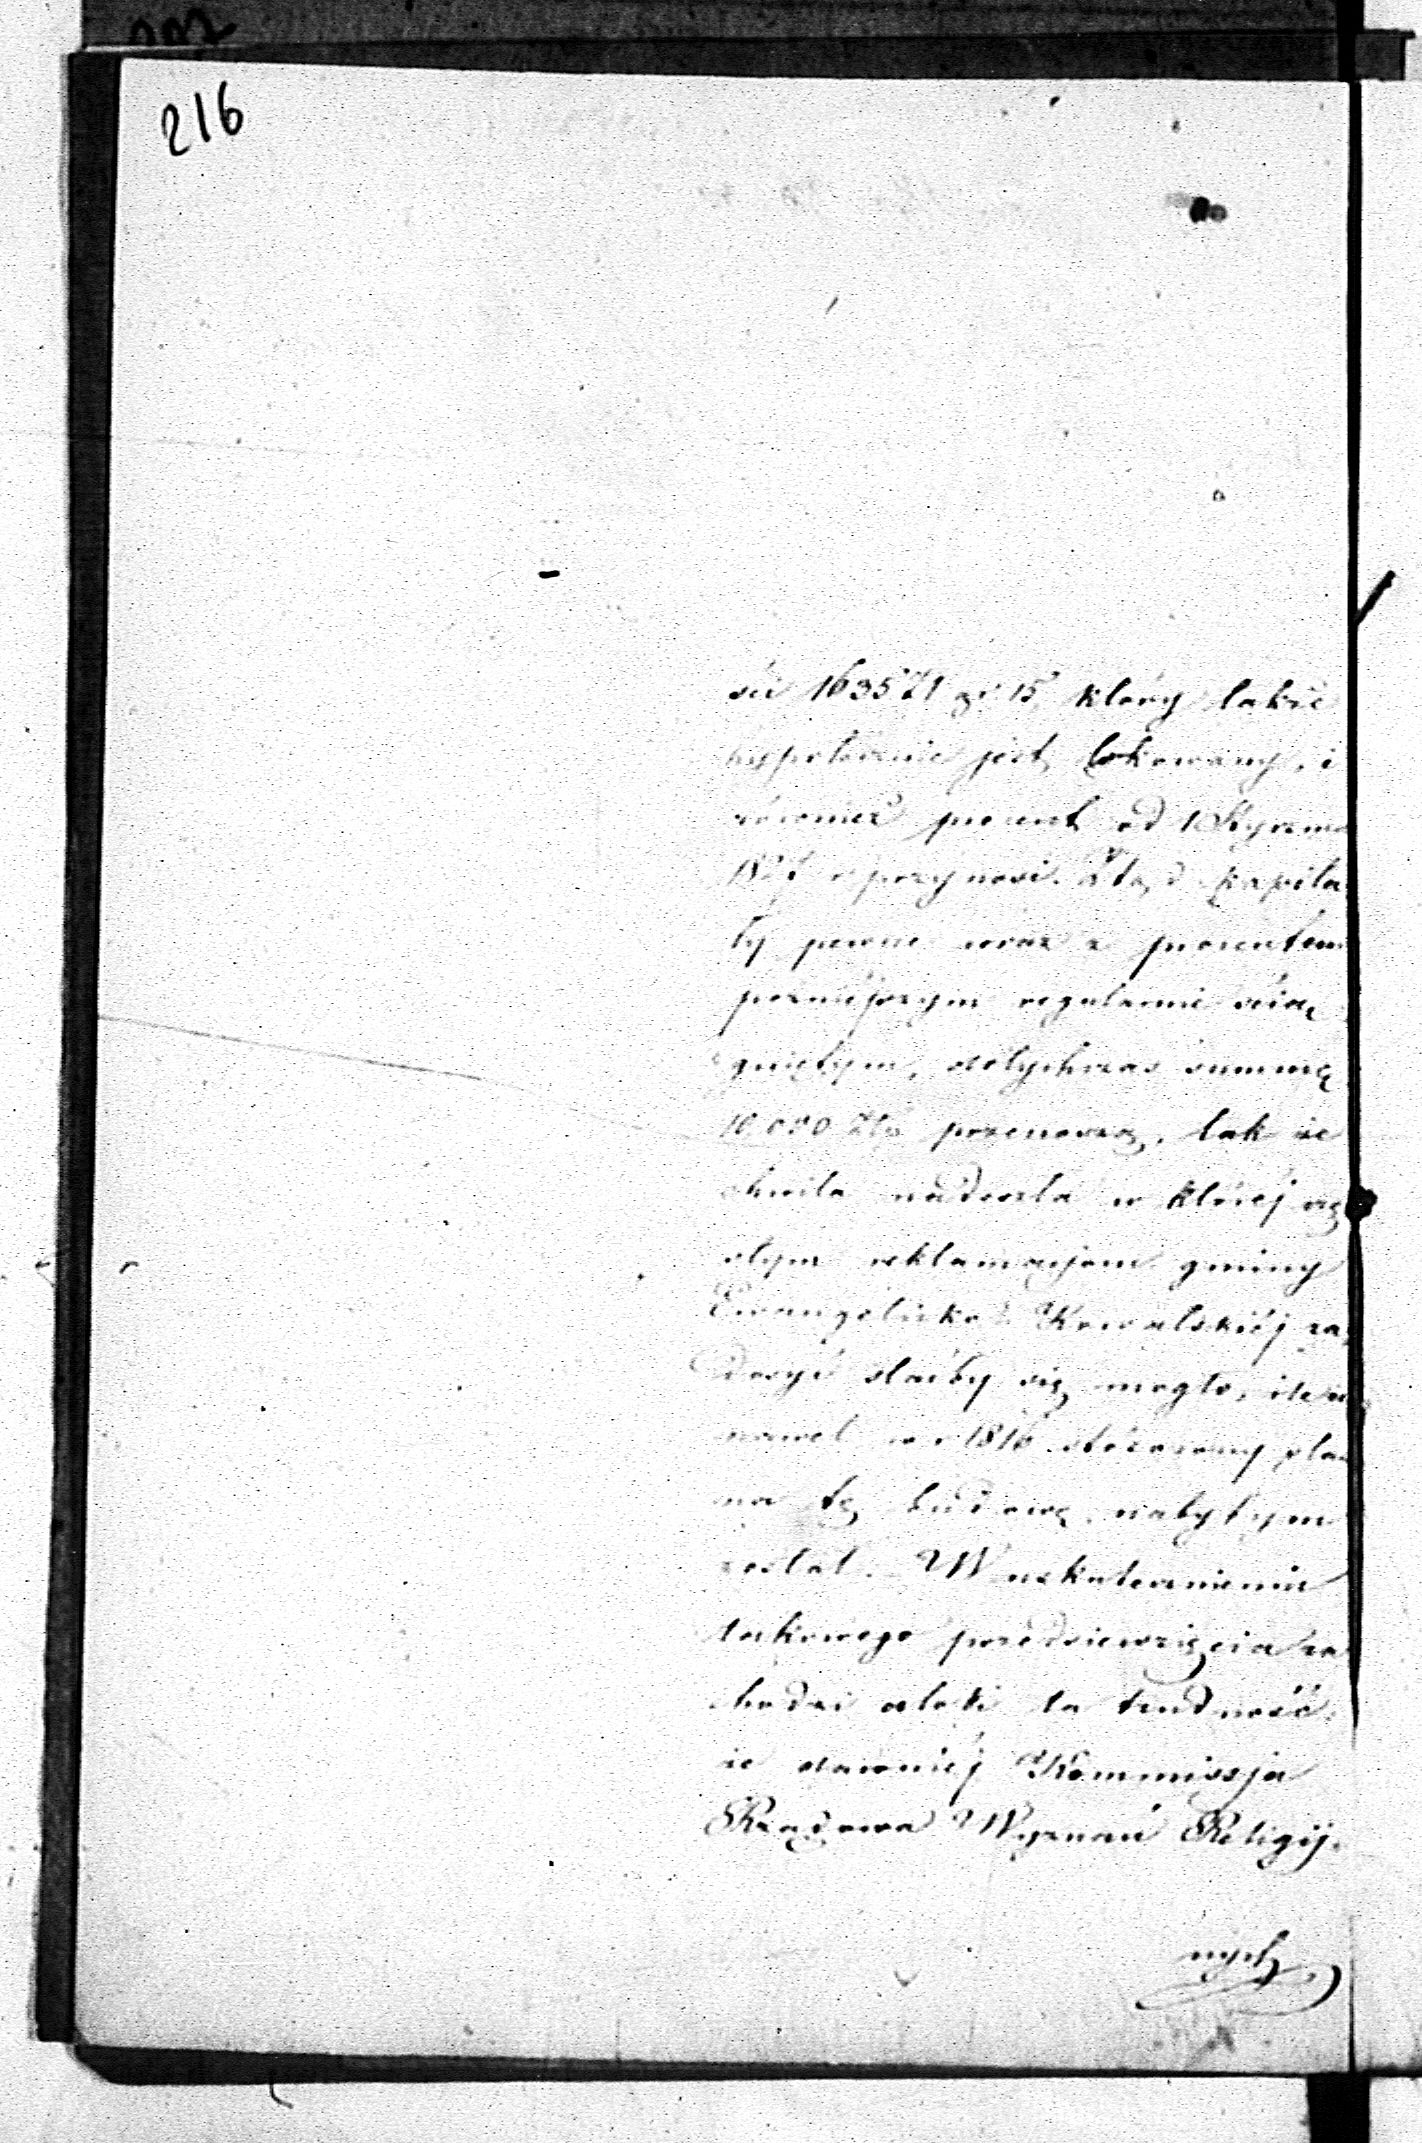 216
ści 1635 Zł gr 15, który także
hypotecznie jest lokowany, i
również procent od 1 Stycznia
1827 r przynosi. Ztąd kapita
ły pewne wraz z procentem
pozniejszym regularnie ścią
gniętym, dotychczas summę
10,000 Złp przenoszą, tak że
chwila nadeszła w której
reklamacjom gminy
Ewangelicko Kowalskiéj za
dosyć stać by się mogło, ile
nawet w r 1816 stósowny plac
na tę budowę nabytym
został. W uskutecznieniu
takowego przedsiewzięcia za
chodzi atoli ta trudność,
że dawniéj Kommissja
Rządowa Wyznań Religij-
nych